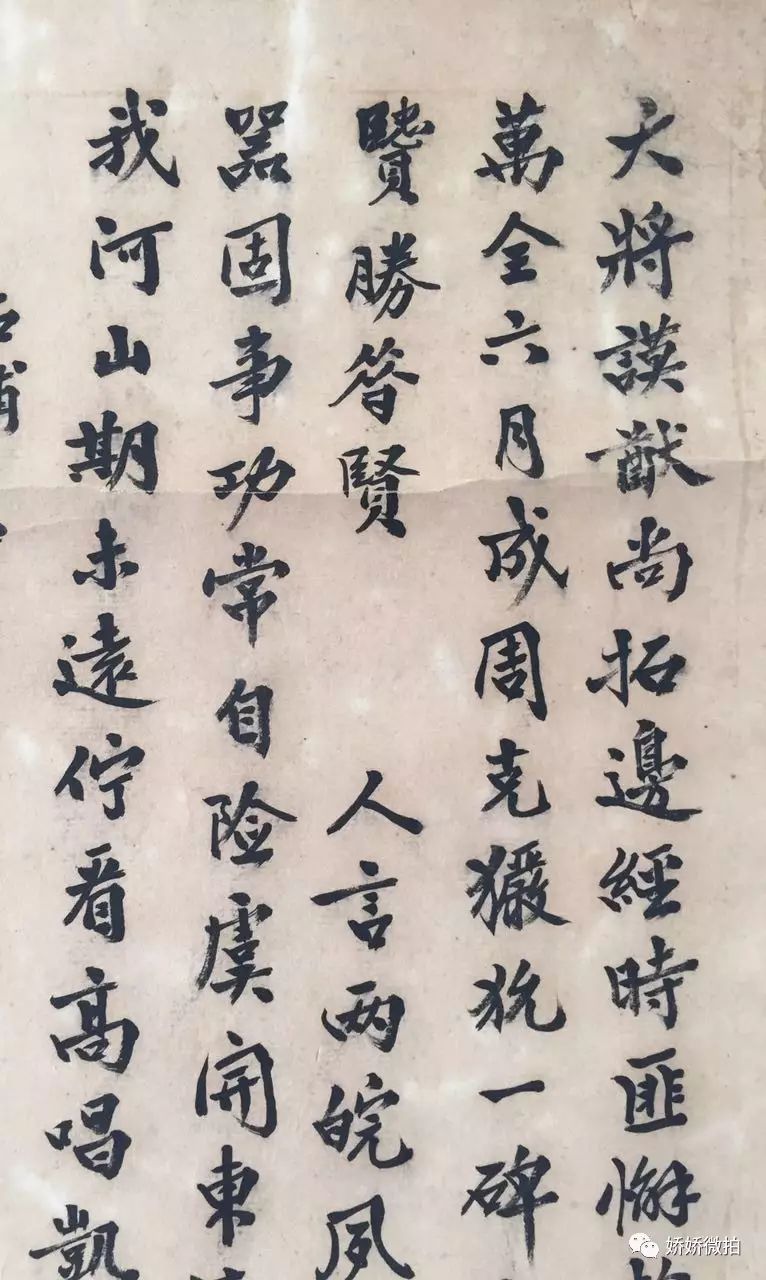 大將謨猷尚拓邊經時匪懈
萬全六月成周克玁狁一碑
贊勝答賢
人言两皖夙
器固事功常自险虞開東
我河山期未遠佇看高唱凱
娇娇微拍